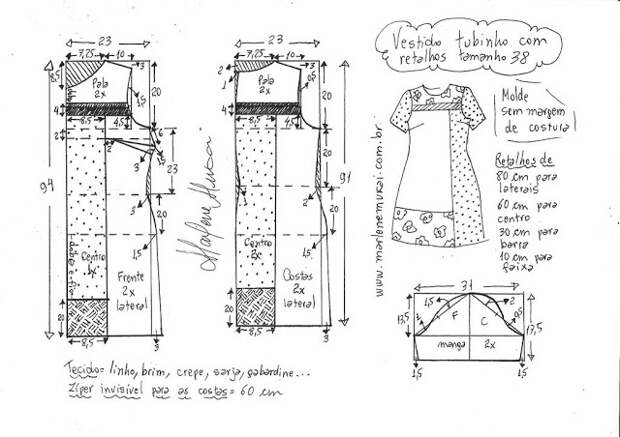 Vestido tubinho com
retalhos tamanho 38
Molde
sem margem
de costura
Retalhos de
80 cm para
laterais
60 cm para
centro
30 cm para
barra
10 cm para
faixa
www.marlenemukai.com.br
23
7,25
10
3
8,5
Pala
2x
1,5
20
4
8,5
4,5
2
2
6
1,5
3
23
3
94
20
1,5
Centro
1x
dobra e fio
Frente
2x
lateral
20
8,5
3
23
7,25
10
3
2
1
Pala
2x
0,5
20
4
8,5
4,5
2
3
91
20
1,5
Centro
2x
Costas
2x
lateral
20
8,5
3
Marlene Mukai
31
1,5
2
F
C
3
0,5
13,5
17,5
manga
2x
1,5
1,5
Tecido= linho, brim, crepe, sarja, gabardine...
Zíper invisível para as costas= 60 cm